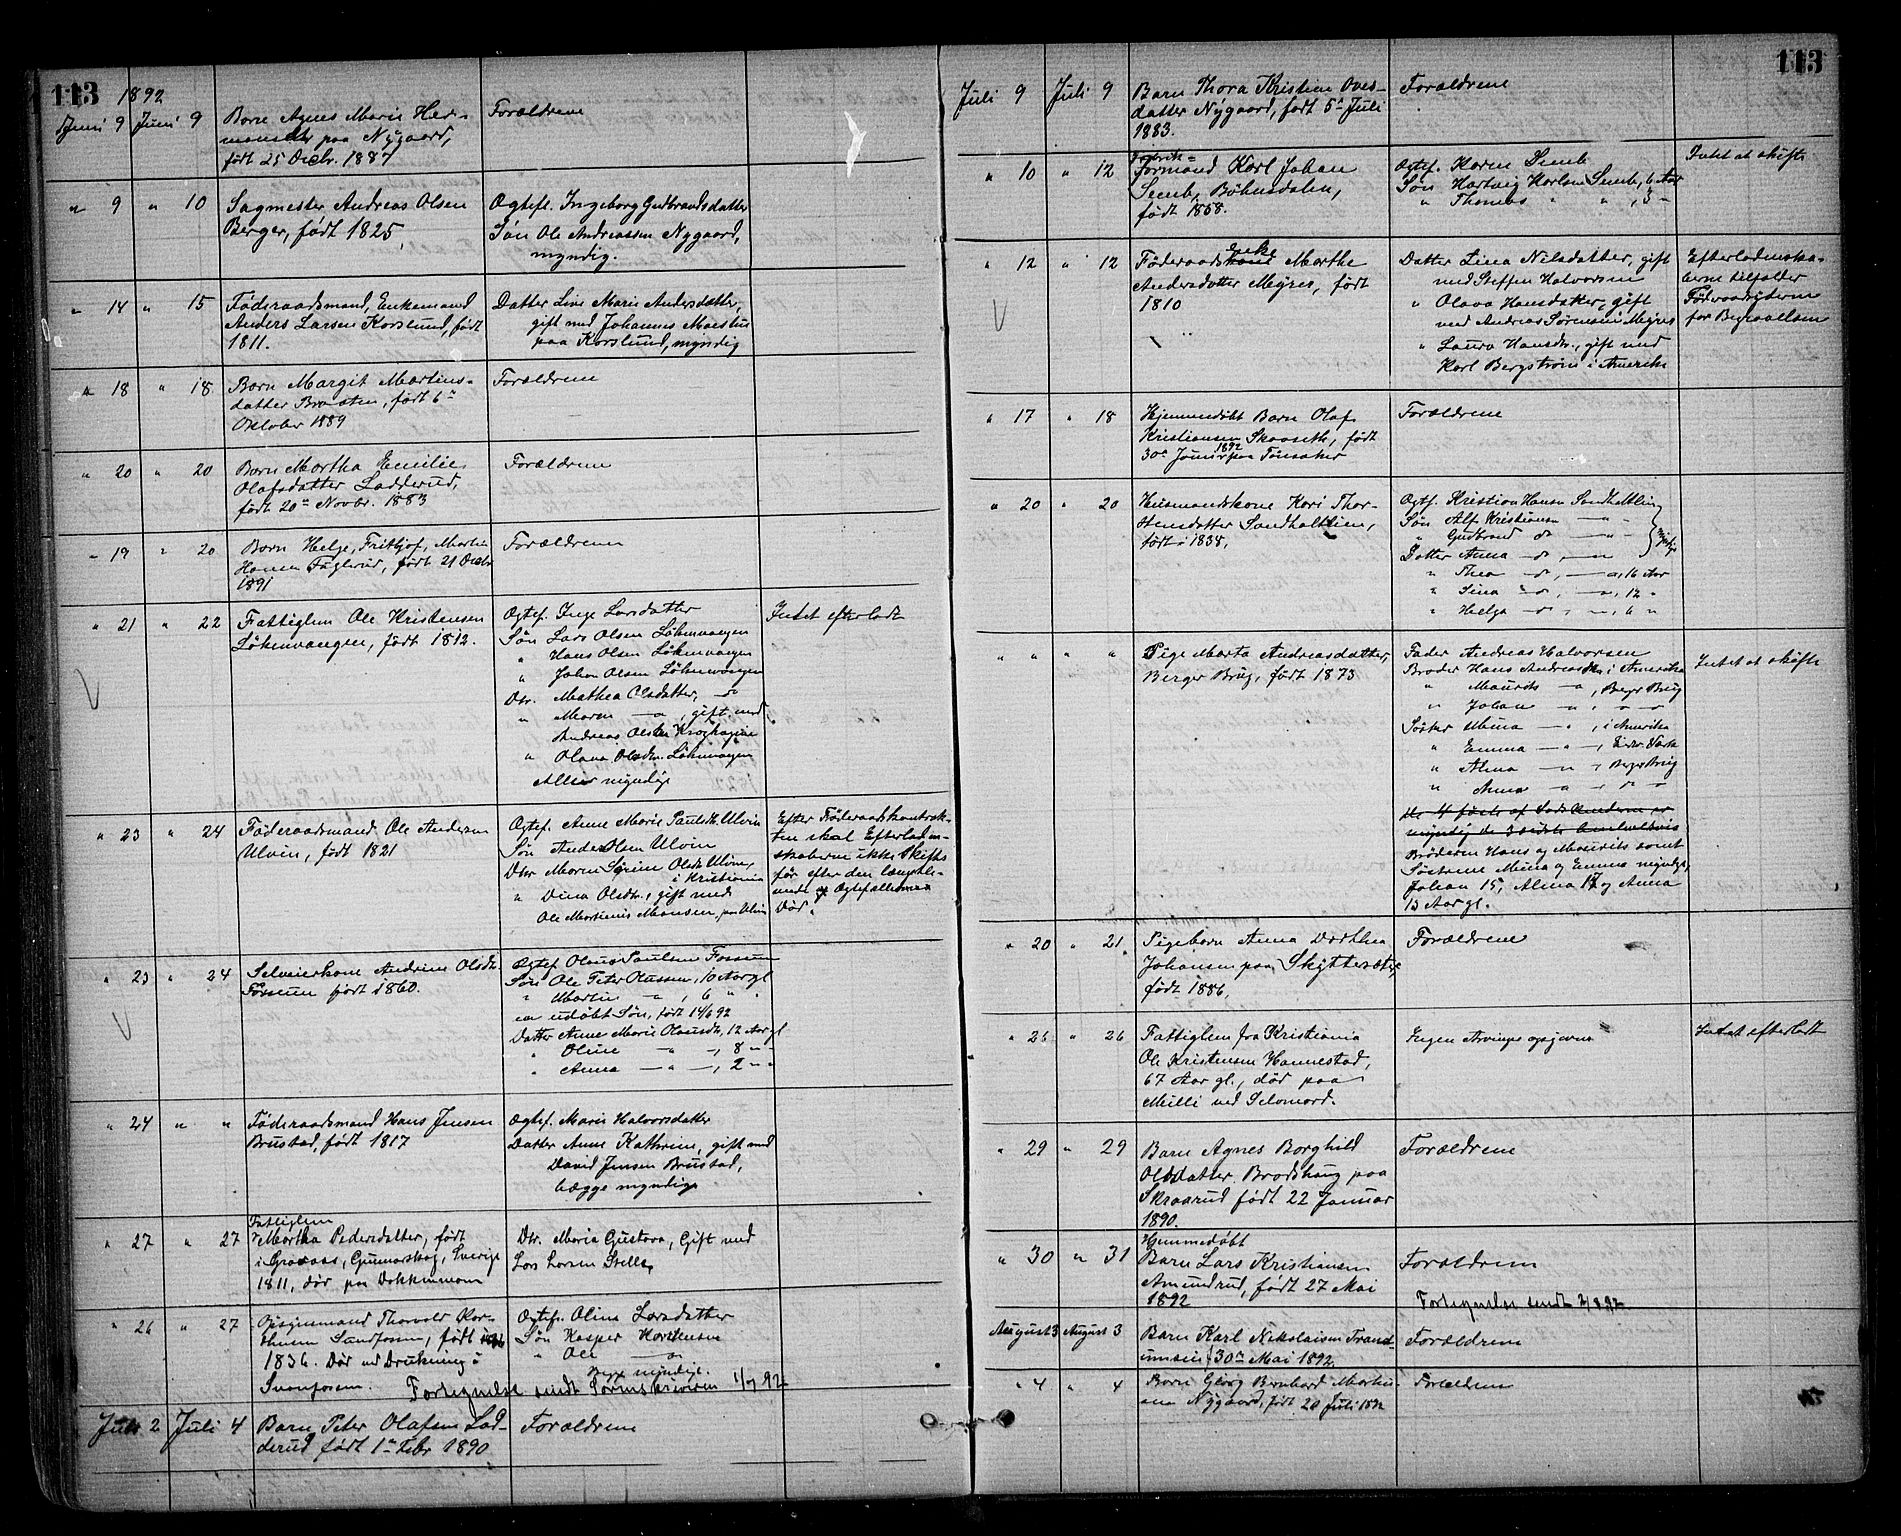 113
1892
Juni 9 Juni 9 Barn Agnes Marie Her-
mansdtr paa Nygaard,
født 25 Decbr. 1887
Forældrene
" 9 " 10 Sagmester Andreas Olsen
Berger, født 1825
Ægtefl. Ingeborg Gudbrandsdatter
Søn Ole Andreassen Nygaard,
myndig.
" 14 " 15 Føderaadsmand, Enkemand
Anders Larsen Korslund, født
1811.
Datter Line Marie Andersdatter,
gift med Johannes
paa Korslund, myndig
" 18 " 18 Barn Margit Martins-
datter Braaten, født 6te
Oktober 1889
Forældrene
" 20 " 20 Barn Martha Emilie
Olafsdatter Ladderud,
født 20de Novbr. 1883
Forældrene
" 19 " 20 Barn Helge Fritjof Martin
Hansen Fuglerud, født 21 Decbr
1891
Forældrene
" 21 " 22 Fattiglem Ole Kristensen
Løkenvangen, født 1812.
Ægtef. Inge Larsdatter
Søn Lars Olsen Løkenvangen
" Hans Olsen Løkenvangen
" Johan Olsen Løkenvangen
Dtr. Mathea Olsdatter, — do
" Maren — " , gift med
Andreas Olsen Kroghagen
" Olava Olsdtr. Løkenvangen
Alle myndige
Intet efterladt
" 23 " 24 Føderaadsmand Ole Andersen
Ulvin, født 1821
Ægtef. Anne Marie Paulsdtr. Ulvin
Søn Anders Olsen Ulvin
Dtr Maren Sørine Olsdtr Ulvin,
i Kristiania
" Dina Olsdtr., gift med
Ole Martinius Monsen, paa Ulvin
Efter Føderaadskontrak-
ten skal Efterladen-
skaberne ikke Skiftes
før efter den længstle-
vende af Ægtefællernes
Død.
" 23 " 24 Selveierkone Andrine Olsdtr.
Fossum født 1860.
Ægtef Olaus Paulsen Fossum
Søn Ole Peter Olaussen, 10 Aar gl
" Martin — " , 6 " "
en udøbt Søn, født 14/6 92
Datter Anne Marie Olausdtr., 12 Aar gl
" Oline — " —, 8 "
" Anna — " —, 2 "
" 24 " " Føderaadsmand Hans Jensen
Brustad, født 1817
Ægtef. Marie Halvorsdatter
Datter Anne Kathrine, gift med
David Jensen Brustad,
begge myndige
" 27 " 27 Fattiglem
Martha Pedersdatter, født
i Graaaas, Gunnarskog, Sverige
1811, død paa
Dtr. Maria Gustava, Gift med
Lars Larsen
" 26 " 27 Opsynsmand Thorvald Kar-
stensen Sundfossen, født
1836. Død ved Drukning i
Svanfossen.
Ægtef. Oline Larsdatter
Søn Kasper Karstensen
" Ole — "
Begge myndige.
Fortegnelse sendt Sorenskriveren 1/7 92
Juli 2 Juli 4 Barn Peter Olafsen Lad-
derud født 1ste Febr 1890
Forældrene
113
Juli 9 Juli 9 Barn Thora Kristine Oves-
datter Nygaard, født 5te Juli
1883.
Forældrene
" 10 " 12 Fabrik-
Formand Karl Johan
Semb, Bøhnsdalen,
født 1858.
Ægtef. Karen Semb
Søn Hartvig Karlsen Semb, 6 Aar
" Thomas " " , 3 "
Intet at skifte
" 12 " 12 Føderaadsenke Marthe
Andersdatter Myres, født
1810
Datter Lina Nilsdatter, gift
med Steffen Halvorsen
" Olava Hansdatter, gift
med Andreas Sørensen Myres
" Laura Hansdtr., gift med
Karl Bergstrøm i Amerika
Efterladenska-
berne tilfalder
Føderaadsyderne
for Begravelsen
" 17 " 18 Hjemmedøbt Barn Olaf
Kristiansen Skaaseth, født
30te Juni 1892 paa Tønsaker
Forældrene
" 20 " 20 Husmandskone Kari Thor-
stensdatter Sandholtlien,
født i 1838,
Ægtf. Kristian Hansen Sandholtlien
Søn Alf Kristiansen — " —
" Gudbrand do — " —
Datter Anna — do, — "
myndige
" Thea — do, — ", 16 Aar
" Lina — do, — ", 12 "
" Helga — do, — ", 6 "
" " " " Pige Marta Andreasdatter,
Berger Brug, født 1873
Fader Andreas Halvorsen
Broder Hans Andreassen, i Amerika
" Maurits — ", Berger Brug
" Johan — " " "
Søster Mina — ", i Amerika
" Emma — ",
" Alma — ", Berger Brug
" Anna — " " "
Brødrene Hans og Maurits samt
Søstrene Mina og Emma myndige,
Johan 15, Alma 17 og Anna
13 Aar gl.
Intet at skifte
" 20 " 21 Pigebarn Anna Dorthea
Johansen paa Skyttersæter
født 1886,
Forældrene
" 26 " 26 Fattiglem fra Kristiania
Ole Kristensen Hannestad,
67 Aar gl., død paa
Melli ved Selomord.
Ingen Arvinger opgivne
Intet efterladt
" 29 " 29 Barn Agnes Borghild
Olsdatter Brodshaug paa
Skraarud født 22 Januar
1890.
Forældrene
" 30 " 31 Hjemmedøbt
Barn Lars Kristiansen
Amundrud, født 27 Mai
1892
Forældrene
Fortegnelse sendt 2/8 92
August 3 August 3 Barn Karl Nikolaisen
30te Mai 1892
Forældrene
" 4 " 4 Barn Georg Bernhard
Nygaard, født 20 Juli 1892
Forældrene